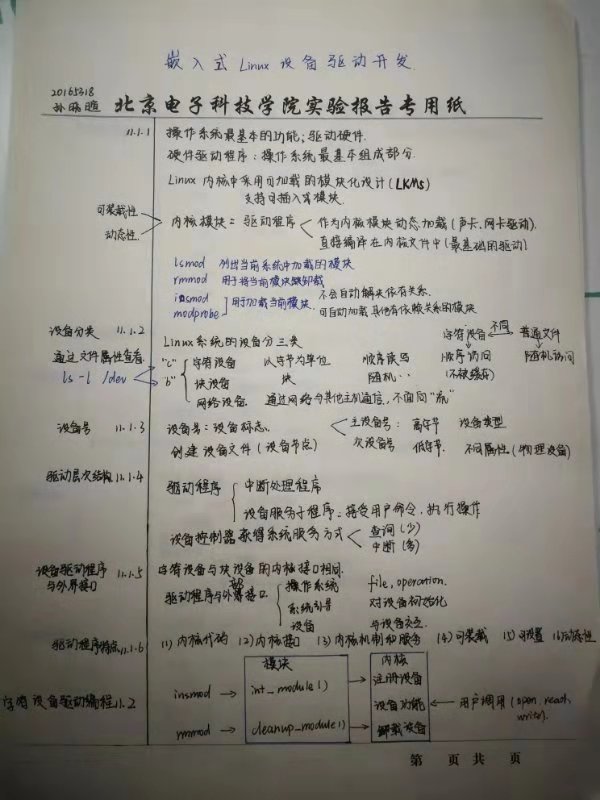 嵌入式 Linux 设备驱动开发.
20165318
孙晓暄 北京电子科技学院实验报告专用纸
11.1.1 操作系统最基本的功能：驱动硬件.
硬件驱动程序：操作系统最基本组成部分.
Linux 内核中采用可加载的模块化设计 (LKMs)
支持可插入式模块.
可装载性
动态性
内核模块 = 驱动程序 作为内核模块动态加载 (声卡、网卡驱动).
直接编译在内核文件中 (最基础的驱动)
lsmod 列出当前系统中加载的模块
rmmod 用于将当前模块卸载
insmod 不会自动解决依存关系.
用于加载当前模块.
modprobe 可自动加载其他有依赖关系的模块
设备分类 11.1.2 Linux系统的设备分三类 字符设备 不同 普通文件
通过文件属性查看. "c" 字符设备 以字节为单位 顺序读写 顺序访问 随机访问
ls -l /dev "b" 块设备 块 随机 ‥ (不被缓存)
网络设备. 通过网络与其他主机通信，不面向"流"
设备号 11.1.3 设备号：设备标志. 主设备号：高字节 设备类型
创建设备文件 (设备节点) 次设备号 低字节. 不同属性 (物理设备)
驱动层次结构 11.1.4 驱动程序 中断处理程序
设备服务子程序：接受用户命令，执行操作
设备控制器获得系统服务方式 查询 (少)
中断 (多)
设备驱动程序
与外界接口 11.1.5 字符设备与块设备的内核接口相同.
驱动程序与外部接口 操作系统 file_operation.
系统引导 对设备初始化
设备 与设备交互.
驱动程序特点 11.1.6 (1) 内核代码 (2) 内核接口 (3) 内核机制和服务 (4) 可装载 (5) 可设置 (6) 动态性
字符设备驱动编程 11.2 模块 内核
insmod int_module() 注册设备
设备功能 用户调用 (open, read,
write).
rmmod cleanup_module() 卸载设备
第 页 共 页